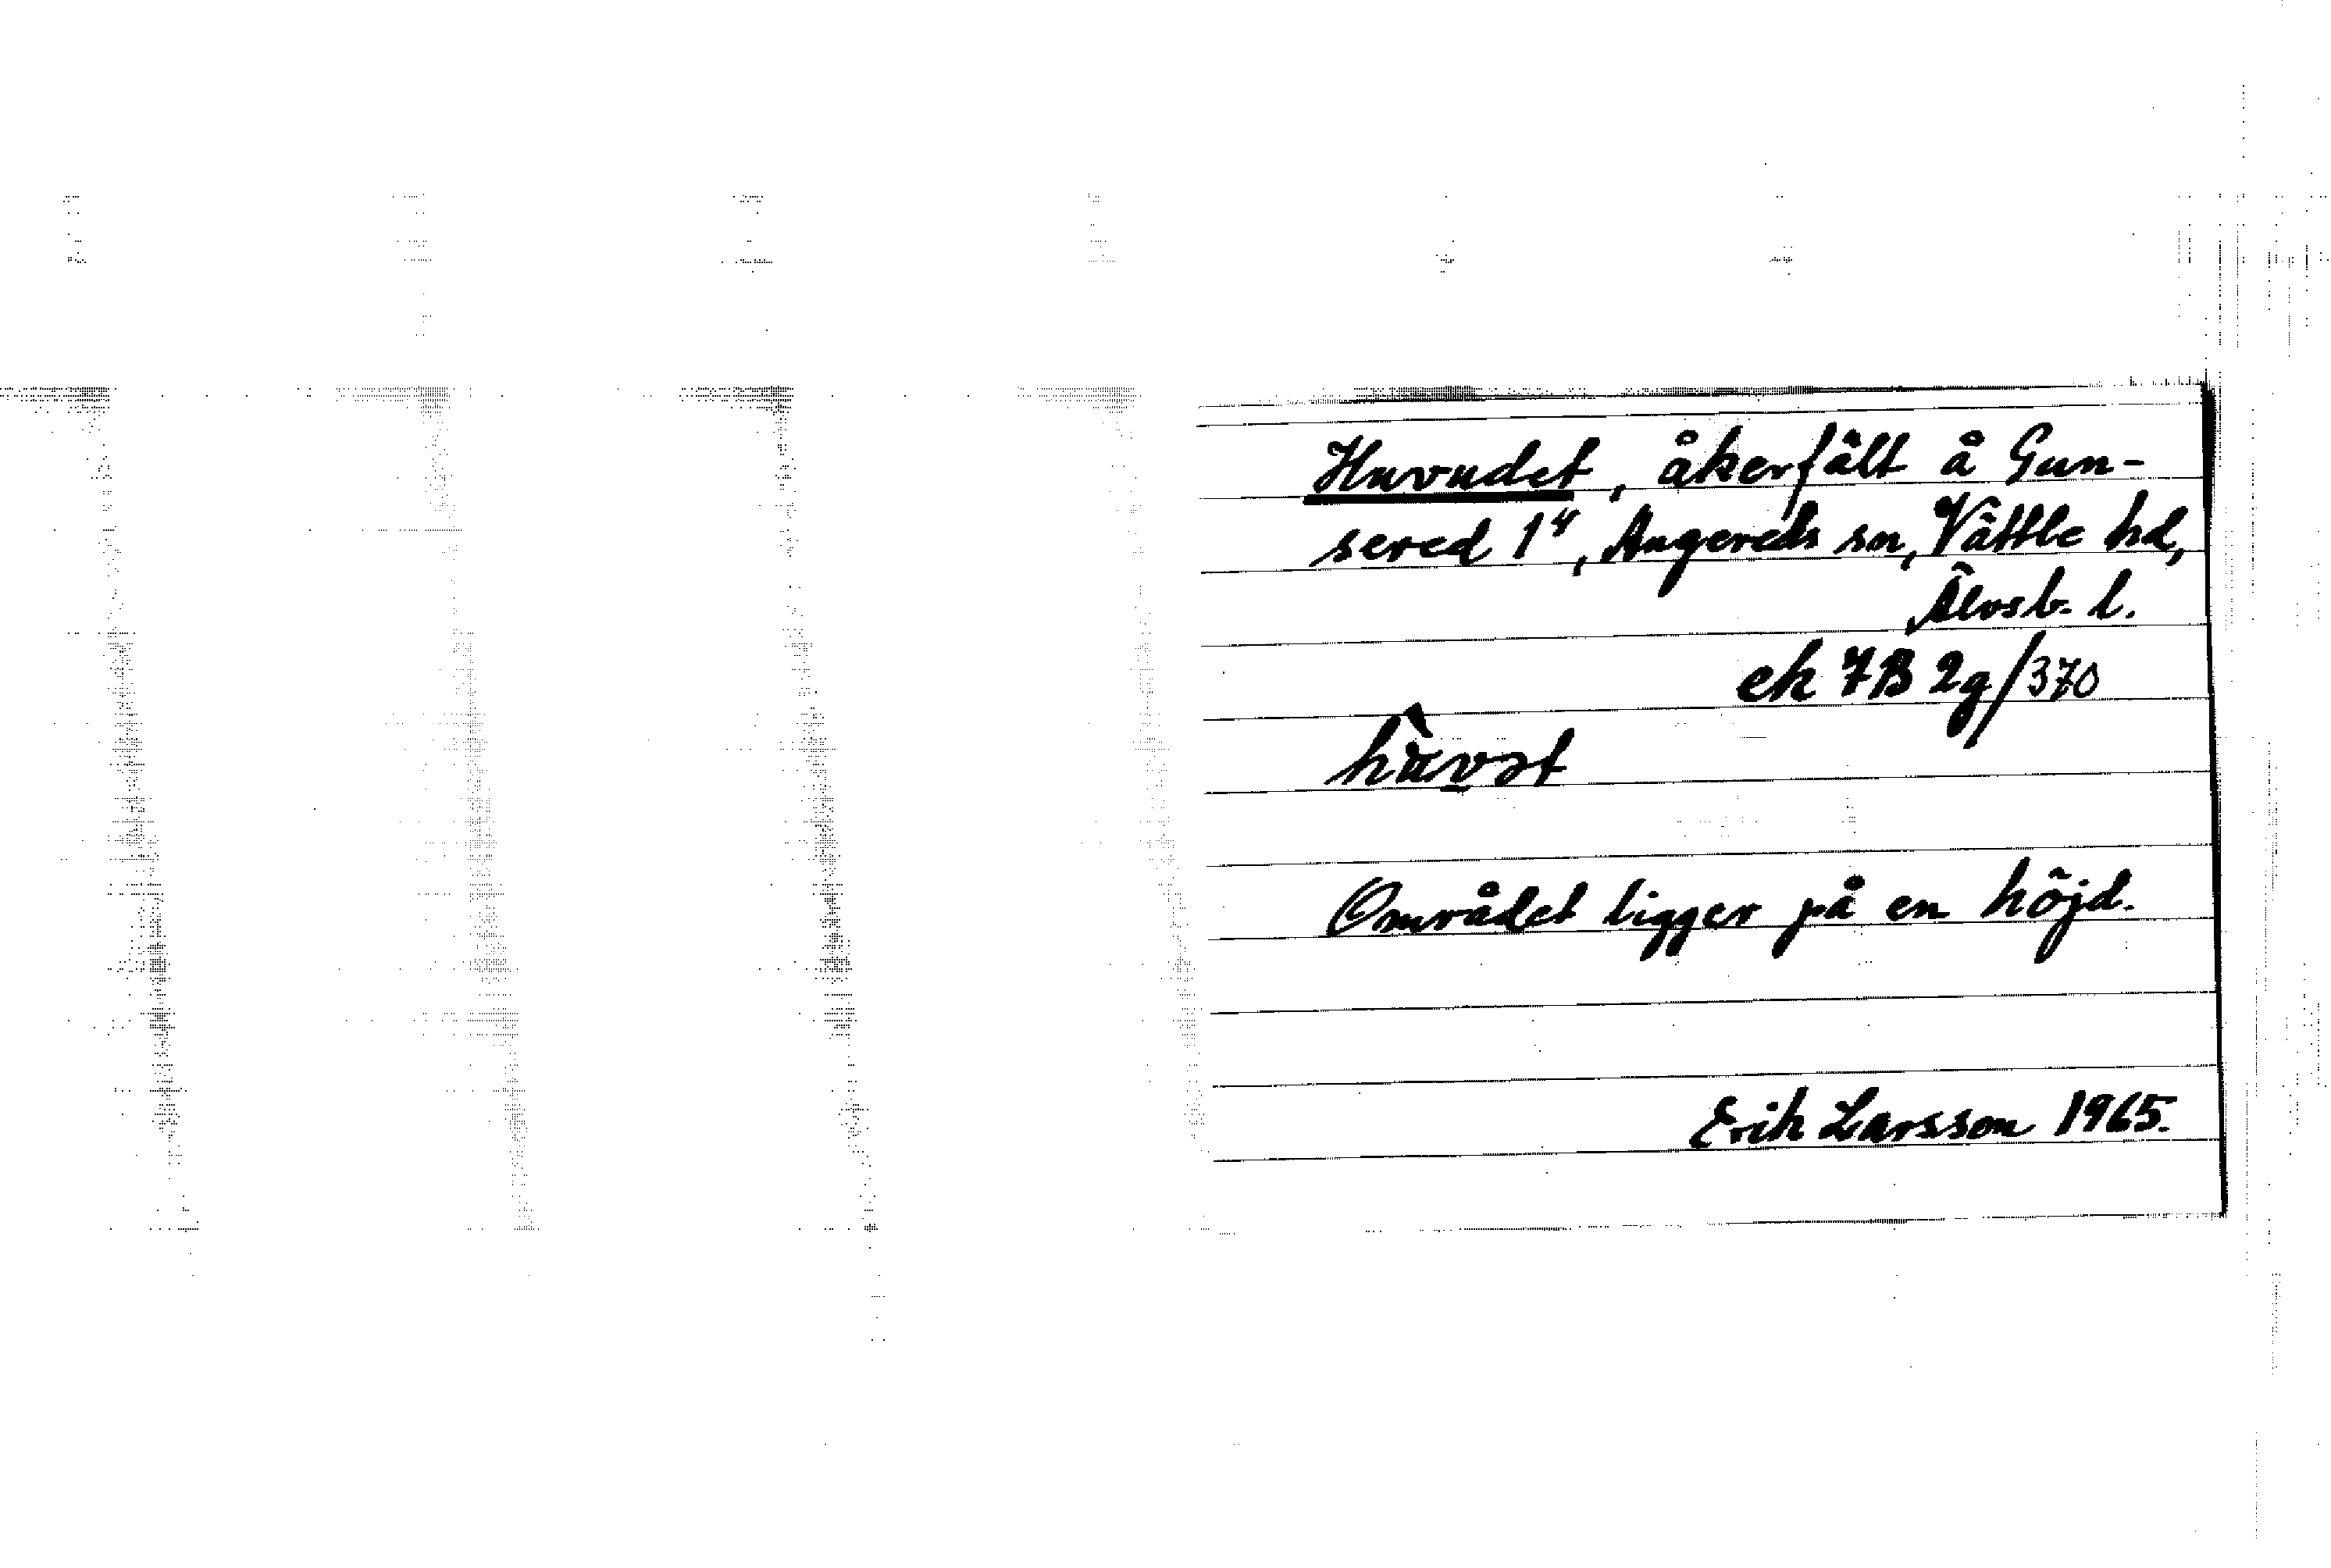 Huvudet, åkerfält å Gun-
sered 1⁴, Angereds sn, Vättle hd,
Älvsb. l.
ek 7B 2g/370
Området ligger på en höjd.
Erik Larsson 1965.